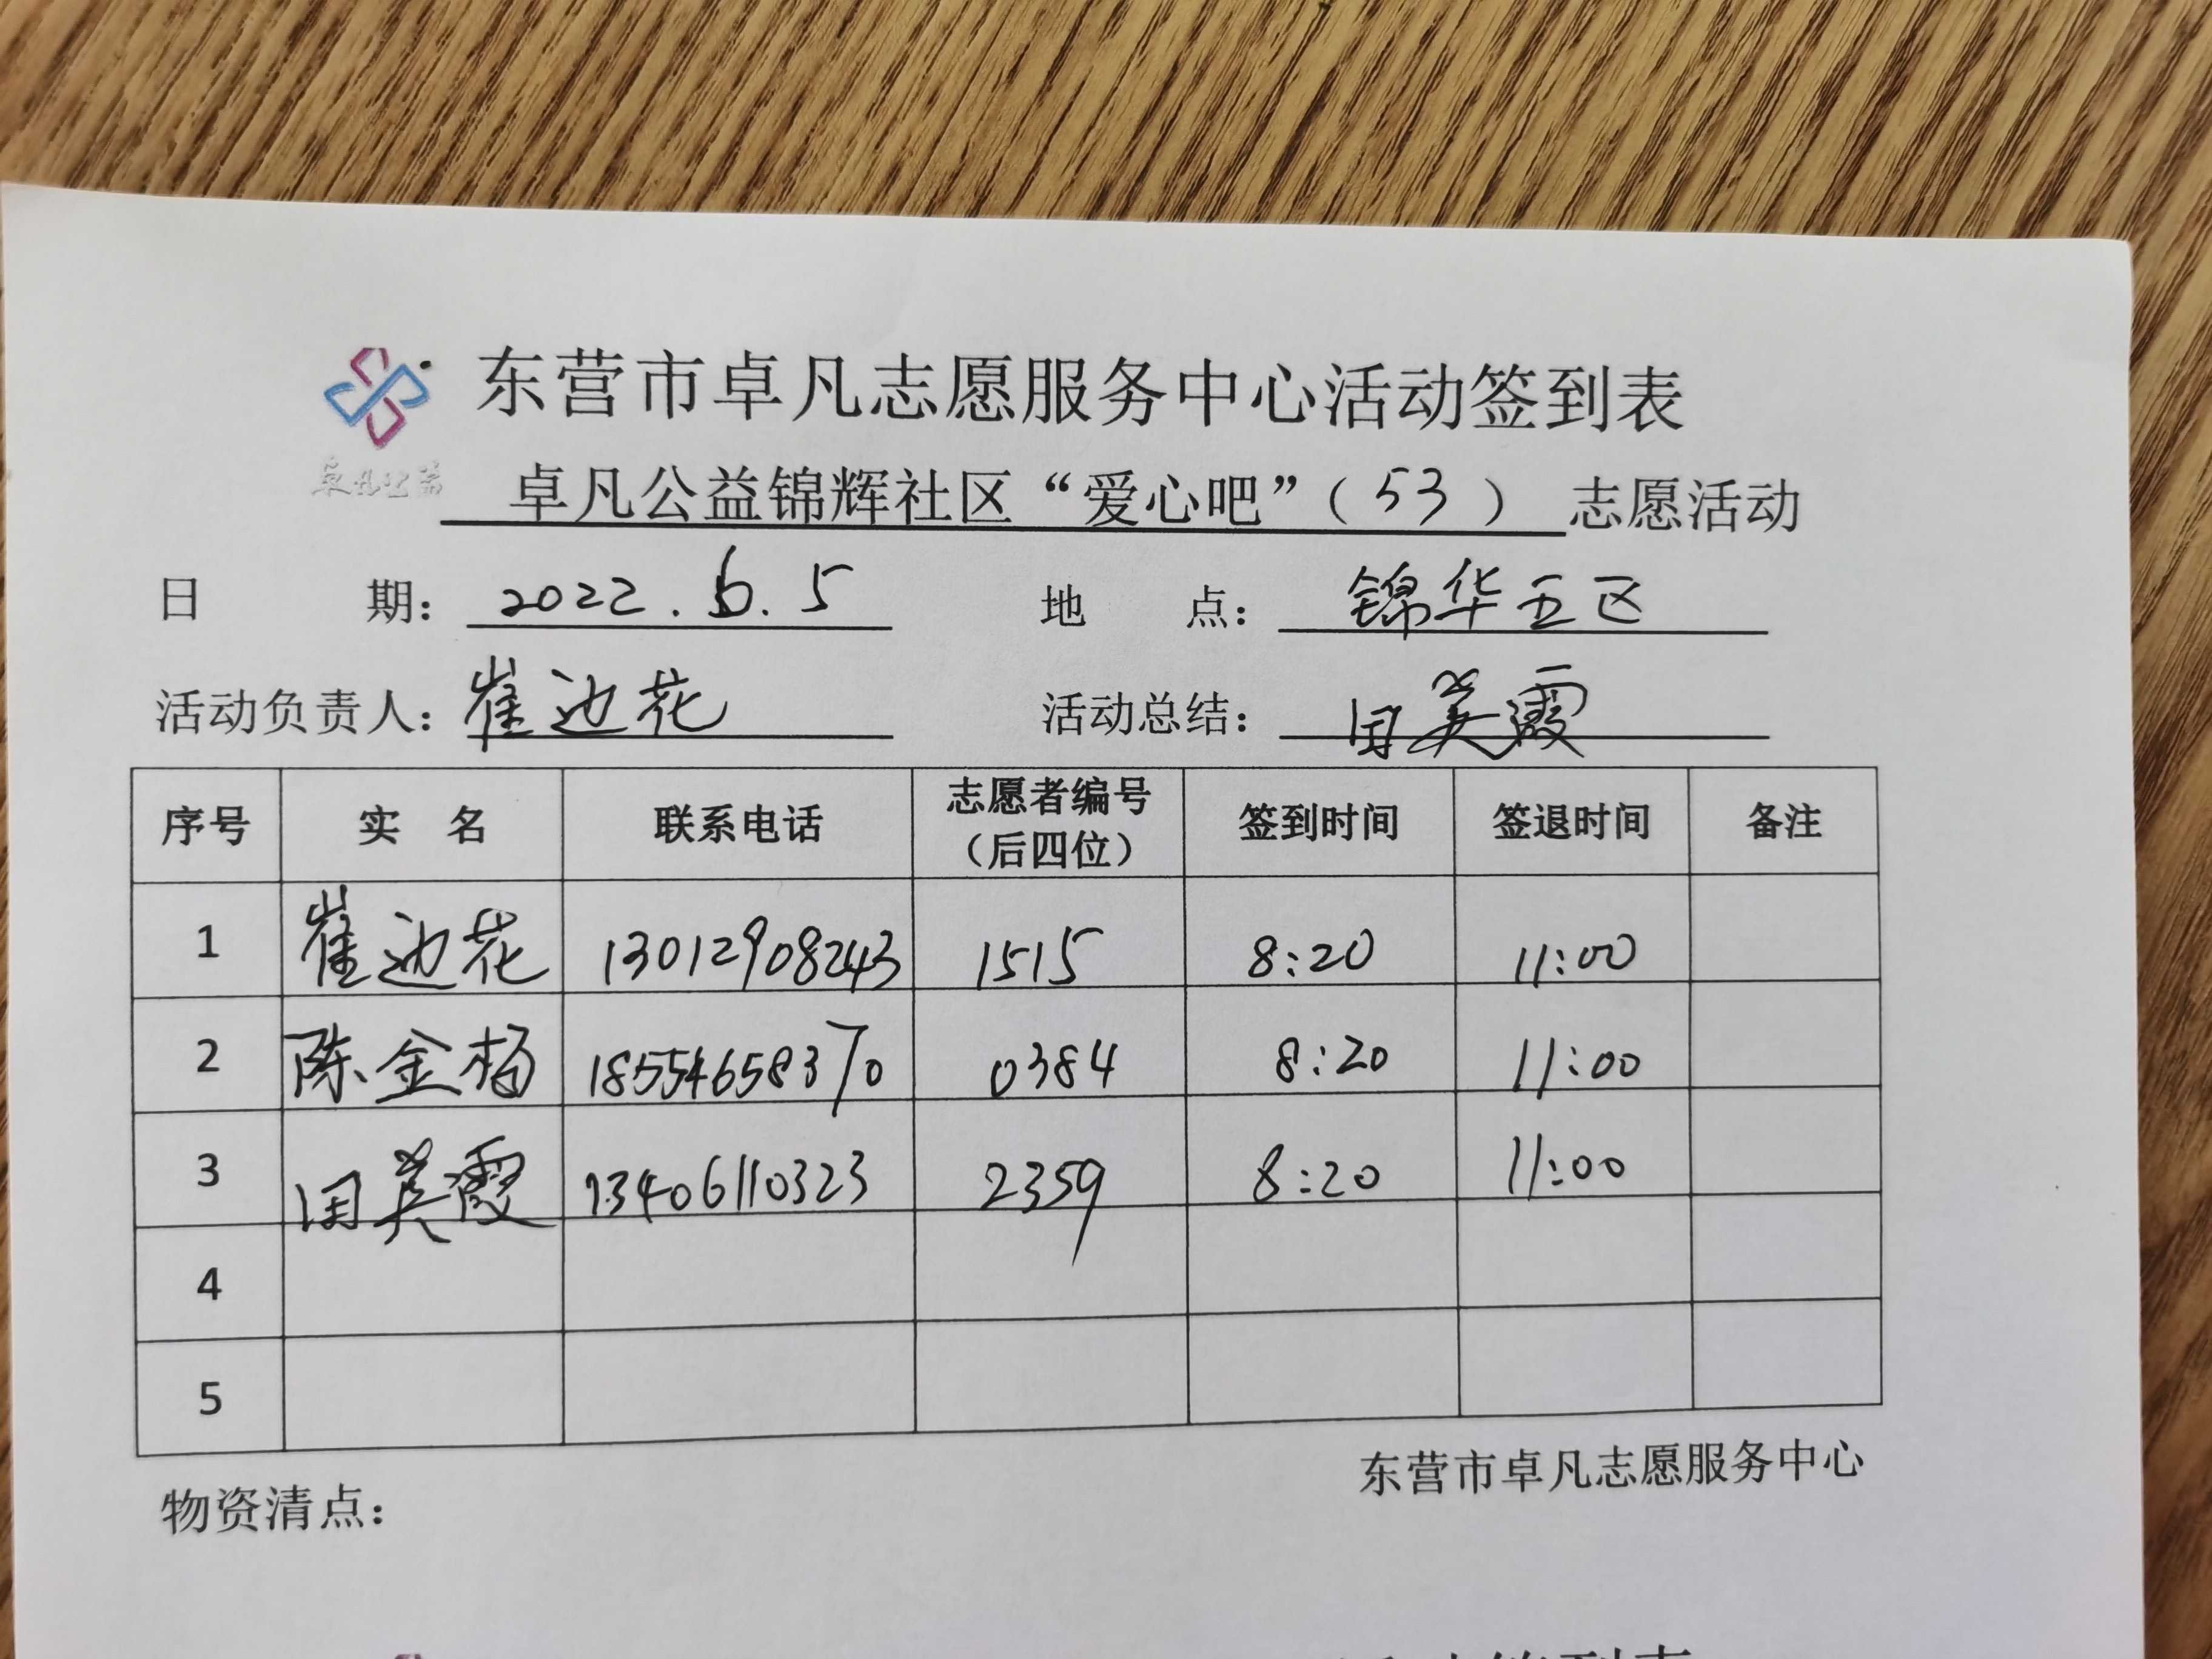 东营市卓凡志愿服务中心活动签到表
卓凡公益
卓凡公益锦辉社区“爱心吧”（53）志愿活动
日期：2022.6.5 地点：锦华五区
活动负责人：崔边花 活动总结：田英霞
序号 实名 联系电话 志愿者编号（后四位） 签到时间 签退时间 备注
1 崔边花 13012908243 1515 8:20 11:00
2 陈金梅 18554658370 0384 8:20 11:00
3 田英霞 13406110323 2359 8:20 11:00
4
5
东营市卓凡志愿服务中心
物资清点：